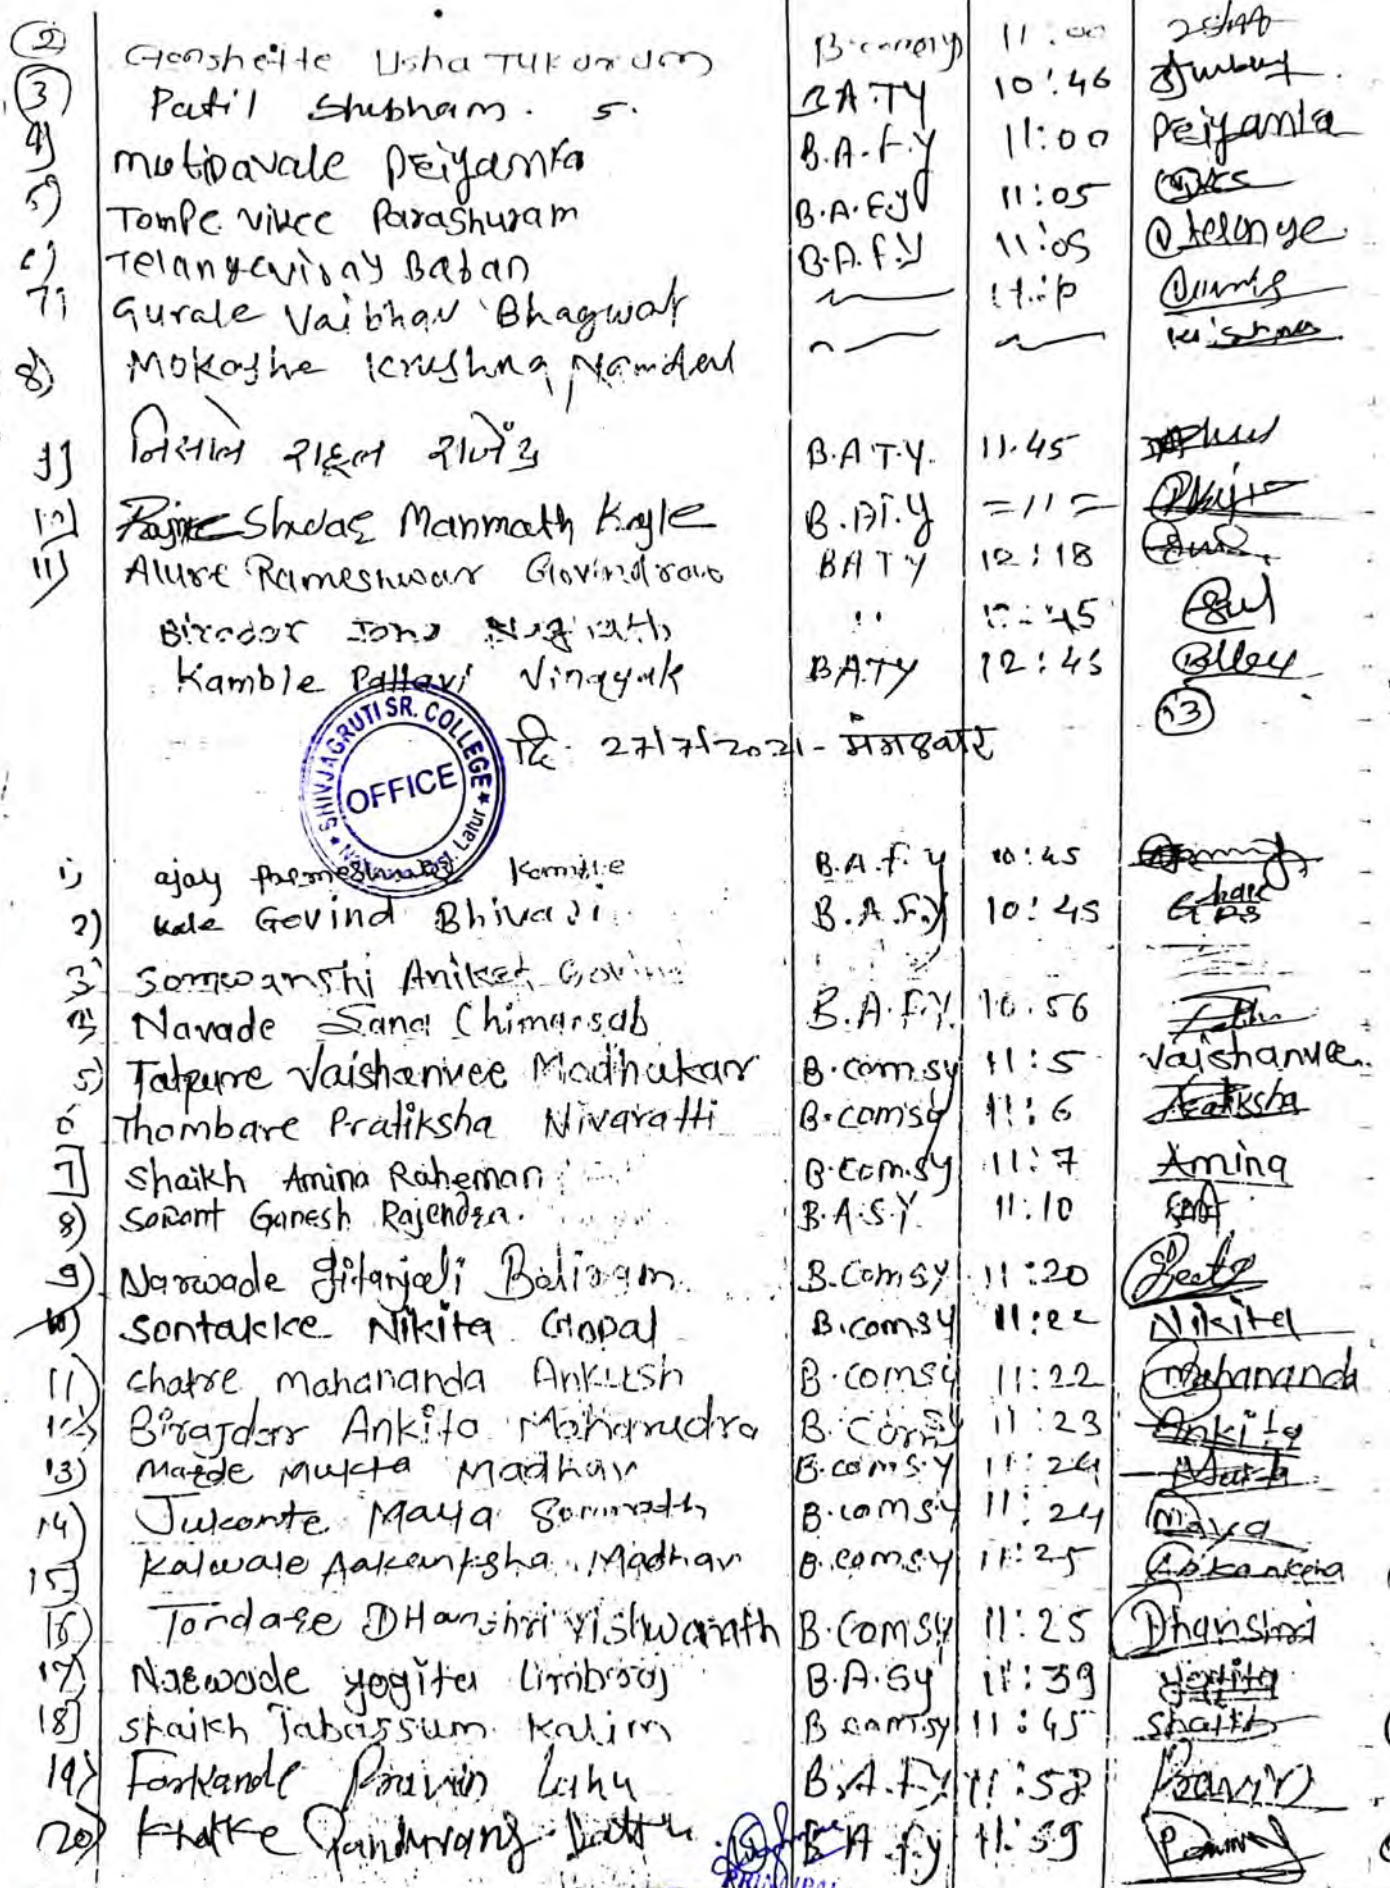 2) Ganshette Usha Tukaram B.com 11:00
3) Patil Shubham. S. B.A.TY 10:46
4) Peiyanka B.A.F.Y 11:00 Peiyanka
5) Tompe vikee Parashuram B.A.F.y 11:05
6) Telange vijay Baban B.A.F.Y 11:05
7) Gurale Vaibhav Bhagwat
8) Mokashe Krushna Namdev Krishna
9] राहूल राजेंद्र B.A T.Y. 11.45
10] Manmath B.A.T.y =11=
11) Alure Rameshwar Govindrao BATY 12:18
Biradar "
Kamble Pallavi Vinayak BATY 12:45
13
SHIVJAGRUTI SR. COLLEGE ★ Latur ★
OFFICE
दि. 27/7/2021 - मंगळवार
1) ajay Kamble B.A.F.y 10:45
2) kale Govind Bhivaji B.A.F.y 10:45
3) Somwanshi Aniket
Navade Sana Chimansab B.A.F.Y. 10.56
5) Tatpure Vaishanvee Madhukar B.com.sy 11:5 Vaishanvee
6 Thombare Pratiksha Nivaratti B.comsy 11:6 Pratiksha
7] Shaikh Amina Raheman B.com.sy 11:7 Amina
8) Sawant Ganesh Rajendra. B.A.S.Y. 11:10
9) Narwade Gitanjali Baliram B.Comsy 11:20
10) Sontakke Nikita Gopal B.com.sy 11:22 Nikita
11) Chatre mahananda Ankush B.comsy 11:22 Mahananda
12) Birajdar Ankita Maharudra B.Comsy 11:23 Ankita
13) Mukta Madhav B.com.sy 11:24
14) Jukonte Maya Somnath B.comsy 11:24 Maya
15] Kalwale Aakanksha Madhav B.com.sy 11:25 Aakanksha
16) Tordare DHanshri Vishwanath B.Comsy 11:25 Dhanshri
17) Narwade yogita Limbraj B.A.Sy 11:39 yogita
18] Shaikh Tabassum Kalim B comsy 11:45 Shaikh
19) Farkande Pravin Lahu B.A.F.y 11:58 Pravin
20) Khatke Pandurang B.A.f.y 11:59
PRINCIPAL